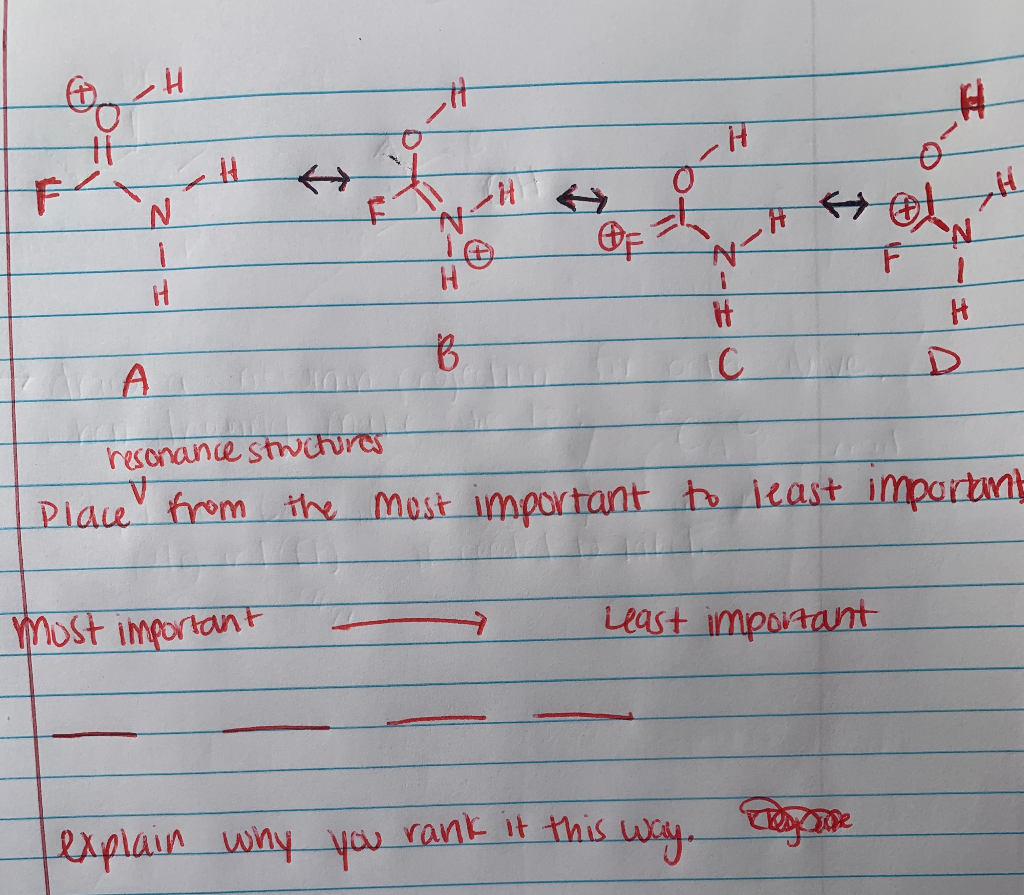 ⊕ O H F N H H ↔ O H F N H H ⊕ ↔ O H ⊕ F N H H ↔ O H ⊕ F N H H
A B C D
resonance structures
Place ∨ from the most important to least important
Most important → Least important
explain why you rank it this way.